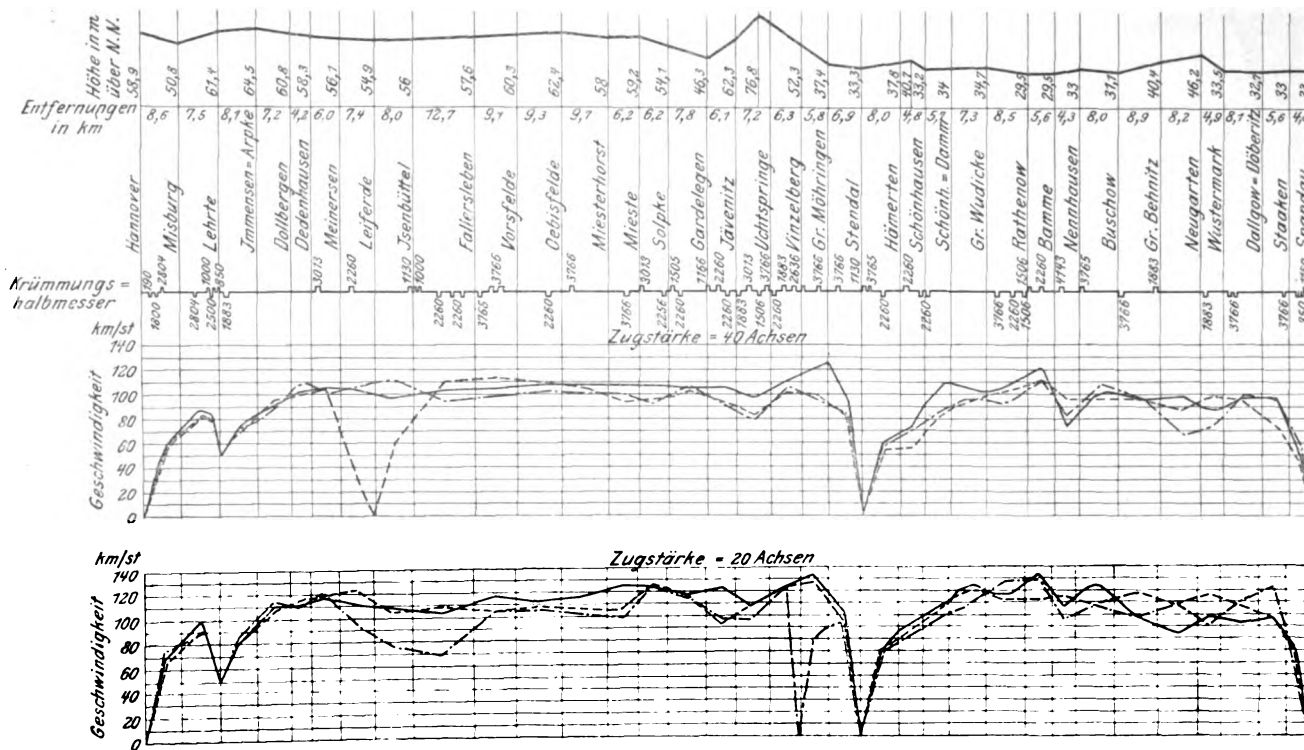 Höhe in m
über N.N.
58,9 50,8 61,4 64,5 60,8 58,3 56,1 54,9 56 57,6 60,3 62,4 58 59,2 54,1 46,3 62,3 76,8 52,3 37,4 33,3 37,8 40,7 33,2 34 34,7 29,5 29,5 33 31,1 40,4 46,2 33,5 32,7 33
Entfernungen
in km
8,6 7,5 8,1 7,2 4,2 6,0 7,4 8,0 12,7 9,1 9,3 9,7 6,2 6,2 7,8 6,1 7,2 6,3 5,8 6,9 8,0 4,8 5,1 7,3 8,5 5,6 4,3 8,0 8,9 8,2 4,9 8,1 5,6
Hannover Misburg Lehrte Jmmensen=Arpke Dollbergen Dedenhausen Meinersen Leiferde Jsenbüttel Fallersleben Vorsfelde Oebisfelde Miesterhorst Mieste Solpke Gardelegen Jävenitz Uchtspringe Vinzelberg Gr. Möhringen Stendal Hämerten Schönhausen Schönh.=Damm Gr. Wudicke Rathenow Bamme Nennhausen Buschow Gr. Behnitz Neugarten Wustermark Dallgow=Döberitz Staaken Spandau
Krümmungs=
halbmesser
2804 1000 3013 2260 1130 1000 3766 3766 3013 2505 1766 2260 3013 3766 1883 2636 3766 3766 1130 3765 2260 1506 2260 4143 3765 1883
1800 2804 2506 1883 2260 2260 3765 2260 3766 2256 2260 2260 1883 1506 2260 2260 2260 3766 2260 1506 3766 1883 3766 3766
km/st
Zugstärke = 40 Achsen
140
120
100
80
60
40
20
0
Geschwindigkeit
km/st
Zugstärke = 20 Achsen
140
120
100
80
60
40
20
0
Geschwindigkeit